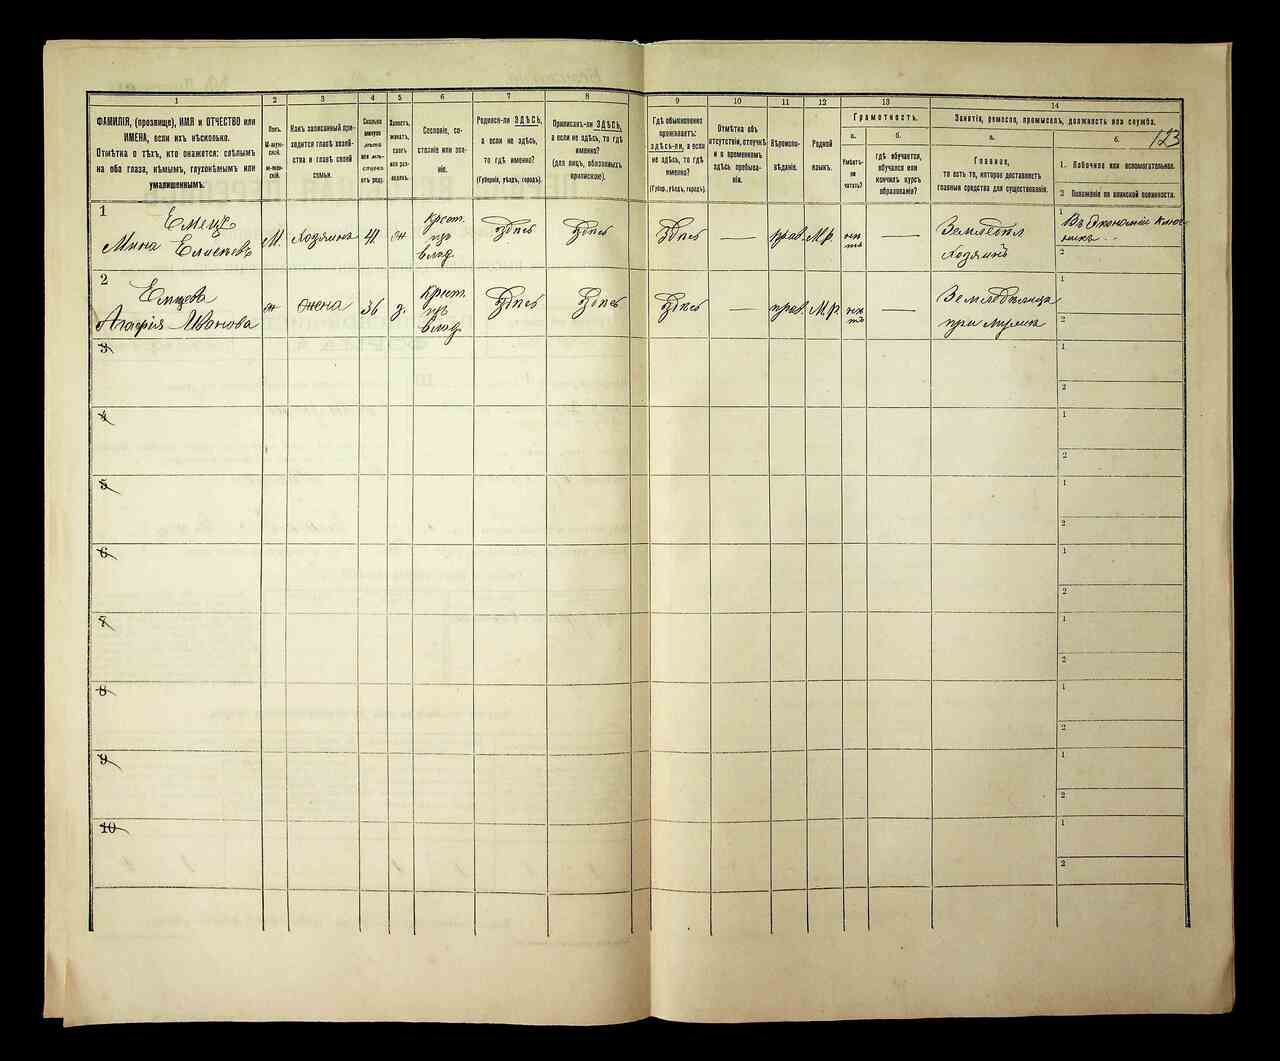 1
2
3
4
5
6
7
8
ФАМИЛІЯ, (прозвище), ИМЯ и ОТЧЕСТВО или
ИМЕНА, если ихъ нѣсколько.
Отмѣтка о тѣхъ, кто окажется: слѣпымъ
на оба глаза, нѣмымъ, глухонѣмымъ или
умалишеннымъ.
Полъ.
М-мужской.
Ж-женскій.
Какъ записанный при-
ходится главѣ хозяй-
ства и главѣ своей
семьи.
Сколько
минуло
лѣтъ
или мѣс-
яцевъ
отъ роду.
Холостъ,
женатъ,
вдовъ
или раз-
веденъ.
Сословіе, со-
стояніе или зва-
ніе.
Родился-ли ЗДѢСЬ,
а если не здѣсь,
то гдѣ именно?
(Губернія, уѣздъ, городъ).
Приписанъ-ли ЗДѢСЬ,
а если не здѣсь, то гдѣ
именно?
(для лицъ, обязанныхъ
припискою).
9
10
11
12
13
14
Гдѣ обыкновенно
проживаетъ:
здѣсь-ли, а если
не здѣсь, то гдѣ
именно?
(Губер., уѣздъ, городъ).
Отмѣтка объ
отсутствіи, отлучкѣ
и о временномъ
здѣсь пребыва-
ніи.
Вѣроиспо-
вѣданіе.
Родной
языкъ.
Грамотность.
а.
Умѣетъ-
ли
чи-
тать?
б.
гдѣ обучается,
обучался или
кончилъ курсъ
образованія?
Занятіе, ремесло, промыселъ, должность или служба.
123
а.
Главное,
то есть то, которое доставляетъ
главныя средства для существованія.
б.
1. Побочное или вспомогательное.
2 Положеніе по воинской повинности.
1
Емецъ
Мина
М.
Хозяинъ
41
ж
Крест.
изъ
влад.
Здѣсь
Здѣсь
Здѣсь
—
прав.
М.р.
нѣтъ
—
Земледѣл
Хозяинъ
1
Въ Экономіи ключ-
никъ
2
2
Емцова
Агафія Иванова
ж
жена
36
з.
Крест.
изъ
влад.
Здѣсь
Здѣсь
Здѣсь
—
прав.
М.р.
нѣтъ
—
Земледѣлица
при мужѣ
1
2
3
1
2
4
1
2
5
1
2
6
1
2
7
1
2
8
1
2
9
1
2
10
1
2